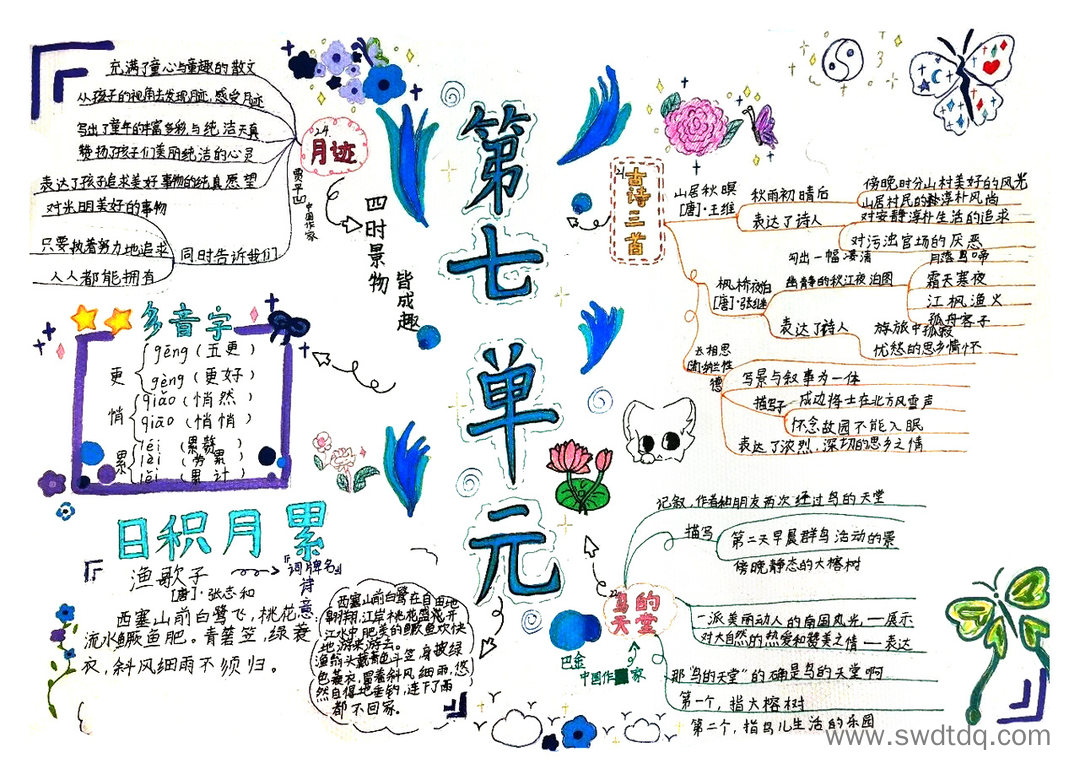 第七单元
四时景物
皆成趣
24.
月迹
贾平凹
中国作家
充满了童心与童趣的散文
从孩子的视角去发现月迹,感受月迹
写出了童年的丰富多彩与纯洁天真
赞扬了孩子们美丽纯洁的心灵
表达了孩子追求美好事物的纯真愿望
对光明美好的事物
只要执着努力地追求
人人都能拥有
同时告诉我们
多音字
更
gēng(五更)
gèng(更好)
悄
qiǎo(悄然)
qiāo(悄悄)
累
léi(累赘)
lèi(劳累)
lěi(累计)
日积月累
渔歌子
『词牌名』
[唐]·张志和
西塞山前白鹭飞,桃花
流水鳜鱼肥。青箬笠,绿蓑
衣,斜风细雨不须归。
诗意:
西塞山前白鹭在自由地
翱翔,江岸桃花盛开
江水中肥美的鳜鱼欢快
地游来游去。
渔翁头戴青色斗笠身披绿
色蓑衣,冒着斜风细雨,悠
然自得地垂钓,连下了雨
都不回家。
21
古诗三首
山居秋暝
[唐]·王维
秋雨初晴后
傍晚时分山村美好的风光
山居村民的淳朴风尚
表达了诗人
对安静淳朴生活的追求
对污浊官场的厌恶
枫桥夜泊
[唐]·张继
勾出一幅凄清
幽静的秋江夜泊图
月落乌啼
霜天寒夜
江枫渔火
孤舟客子
表达了诗人
旅途中孤寂
忧愁的思乡情怀
长相思
[清]·纳兰性德
写景与叙事为一体
描写了
戍边将士在北方风雪声
怀念故园不能入眠
表达了浓烈、深切的思乡之情
鸟的
天堂
巴金
中国作家
记叙,作者和朋友两次经过鸟的天堂
描写
第二天早晨群鸟活动的景
傍晚静态的大榕树
一派美丽动人的南国风光,—展示
对大自然的热爱和赞美之情—表达
那"鸟的天堂"的确是鸟的天堂啊
第一个,指大榕树
第二个,指鸟儿生活的乐园
www.swdtdq.com